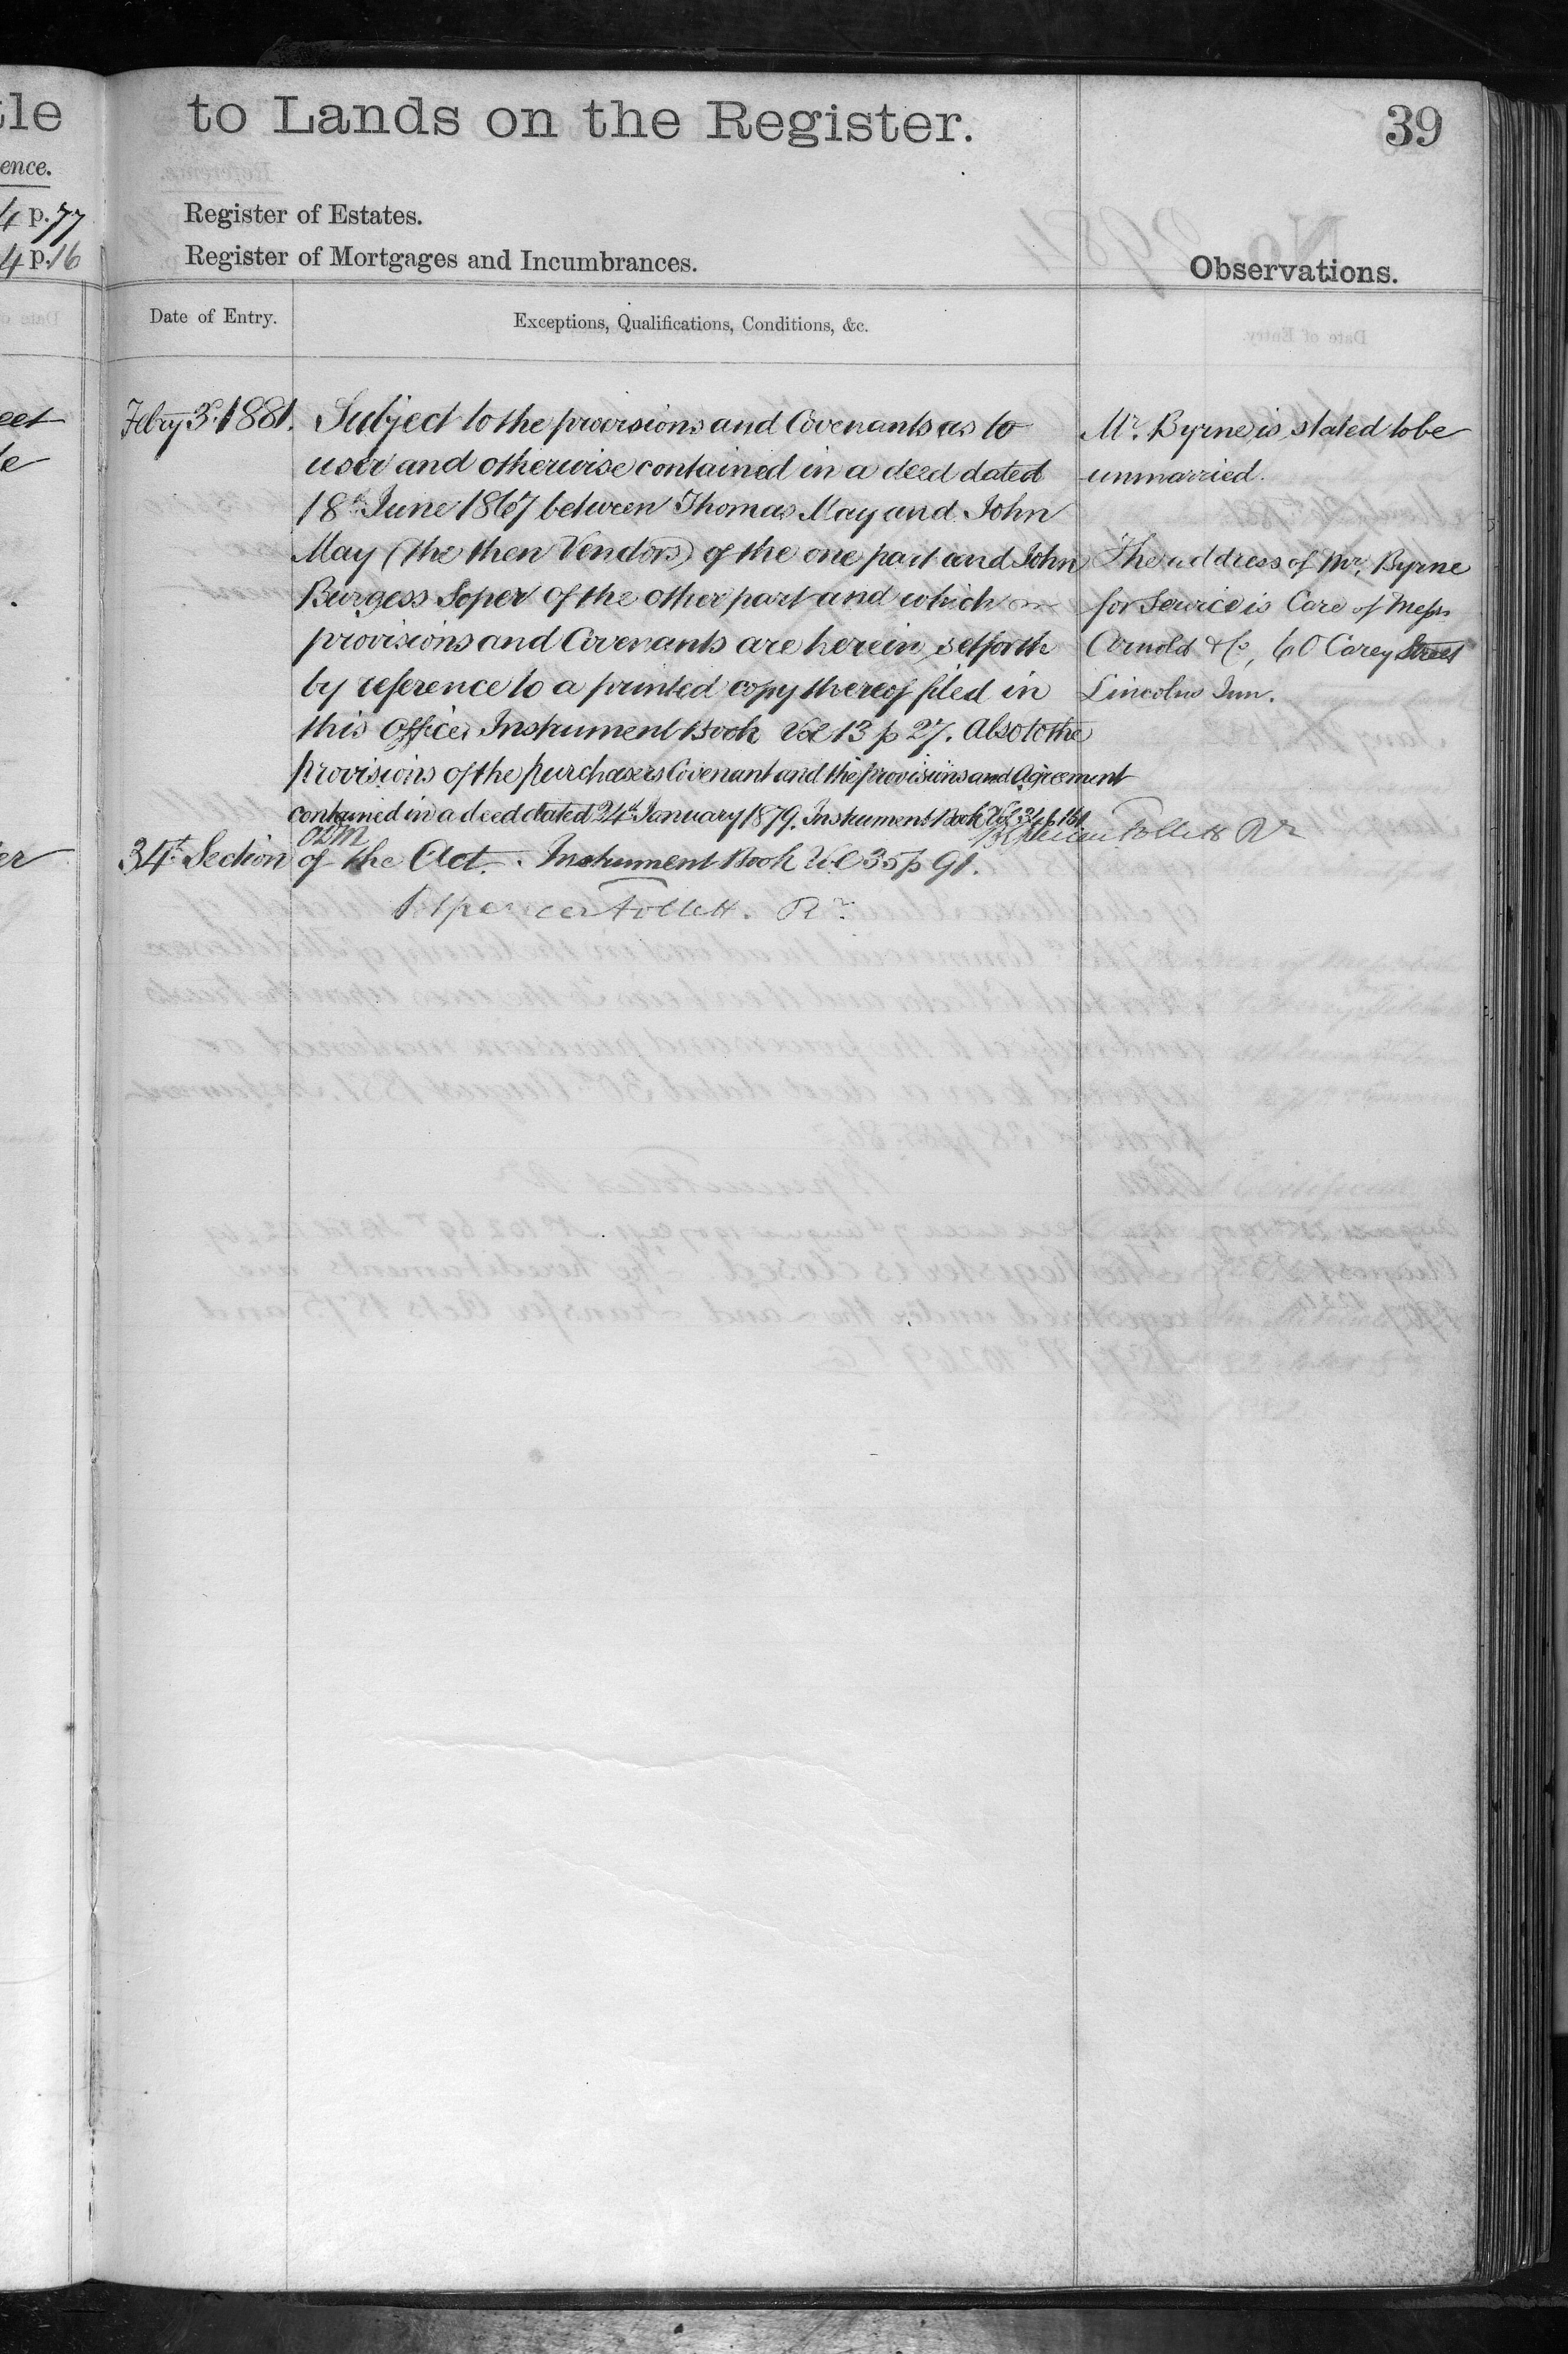 tle
ence.
4 p. 77
4 p. 16
eet
te
er
to Lands on the Register.
39
Register of Estates.
Register of Mortgages and Incumbrances.
Observations.
Date of Entry.
Exceptions, Qualifications, Conditions, &c.
Febry 3d. 1881.
Subject to the provisions and Covenants as to
user and otherwise contained in a deed dated
18th June 1867 between Thomas May and John
May (the then Vendors) of the one part and John
Burgess Soper of the other part and which
provisions and Covenants are herein setforth
by reference to a printed copy thereof filed in
this Office, Instrument Book Vol 13 p 27. Also to the
provisions of the purchasers Covenant and the provisions and Agreement
contained in a deed dated 24th January 1879. Instrument Book Vol 31 p 161
Spencer Follett Rr
34th Section of the Act. Instrument Book Vol 35 p 91.
Spencer Follett. Rr.
Mr. Byrne is stated to be
unmarried.
The address of Mr. Byrne
for Service is Care of Messrs
Arnold & Co, 60 Carey Street
Lincolns Inn.